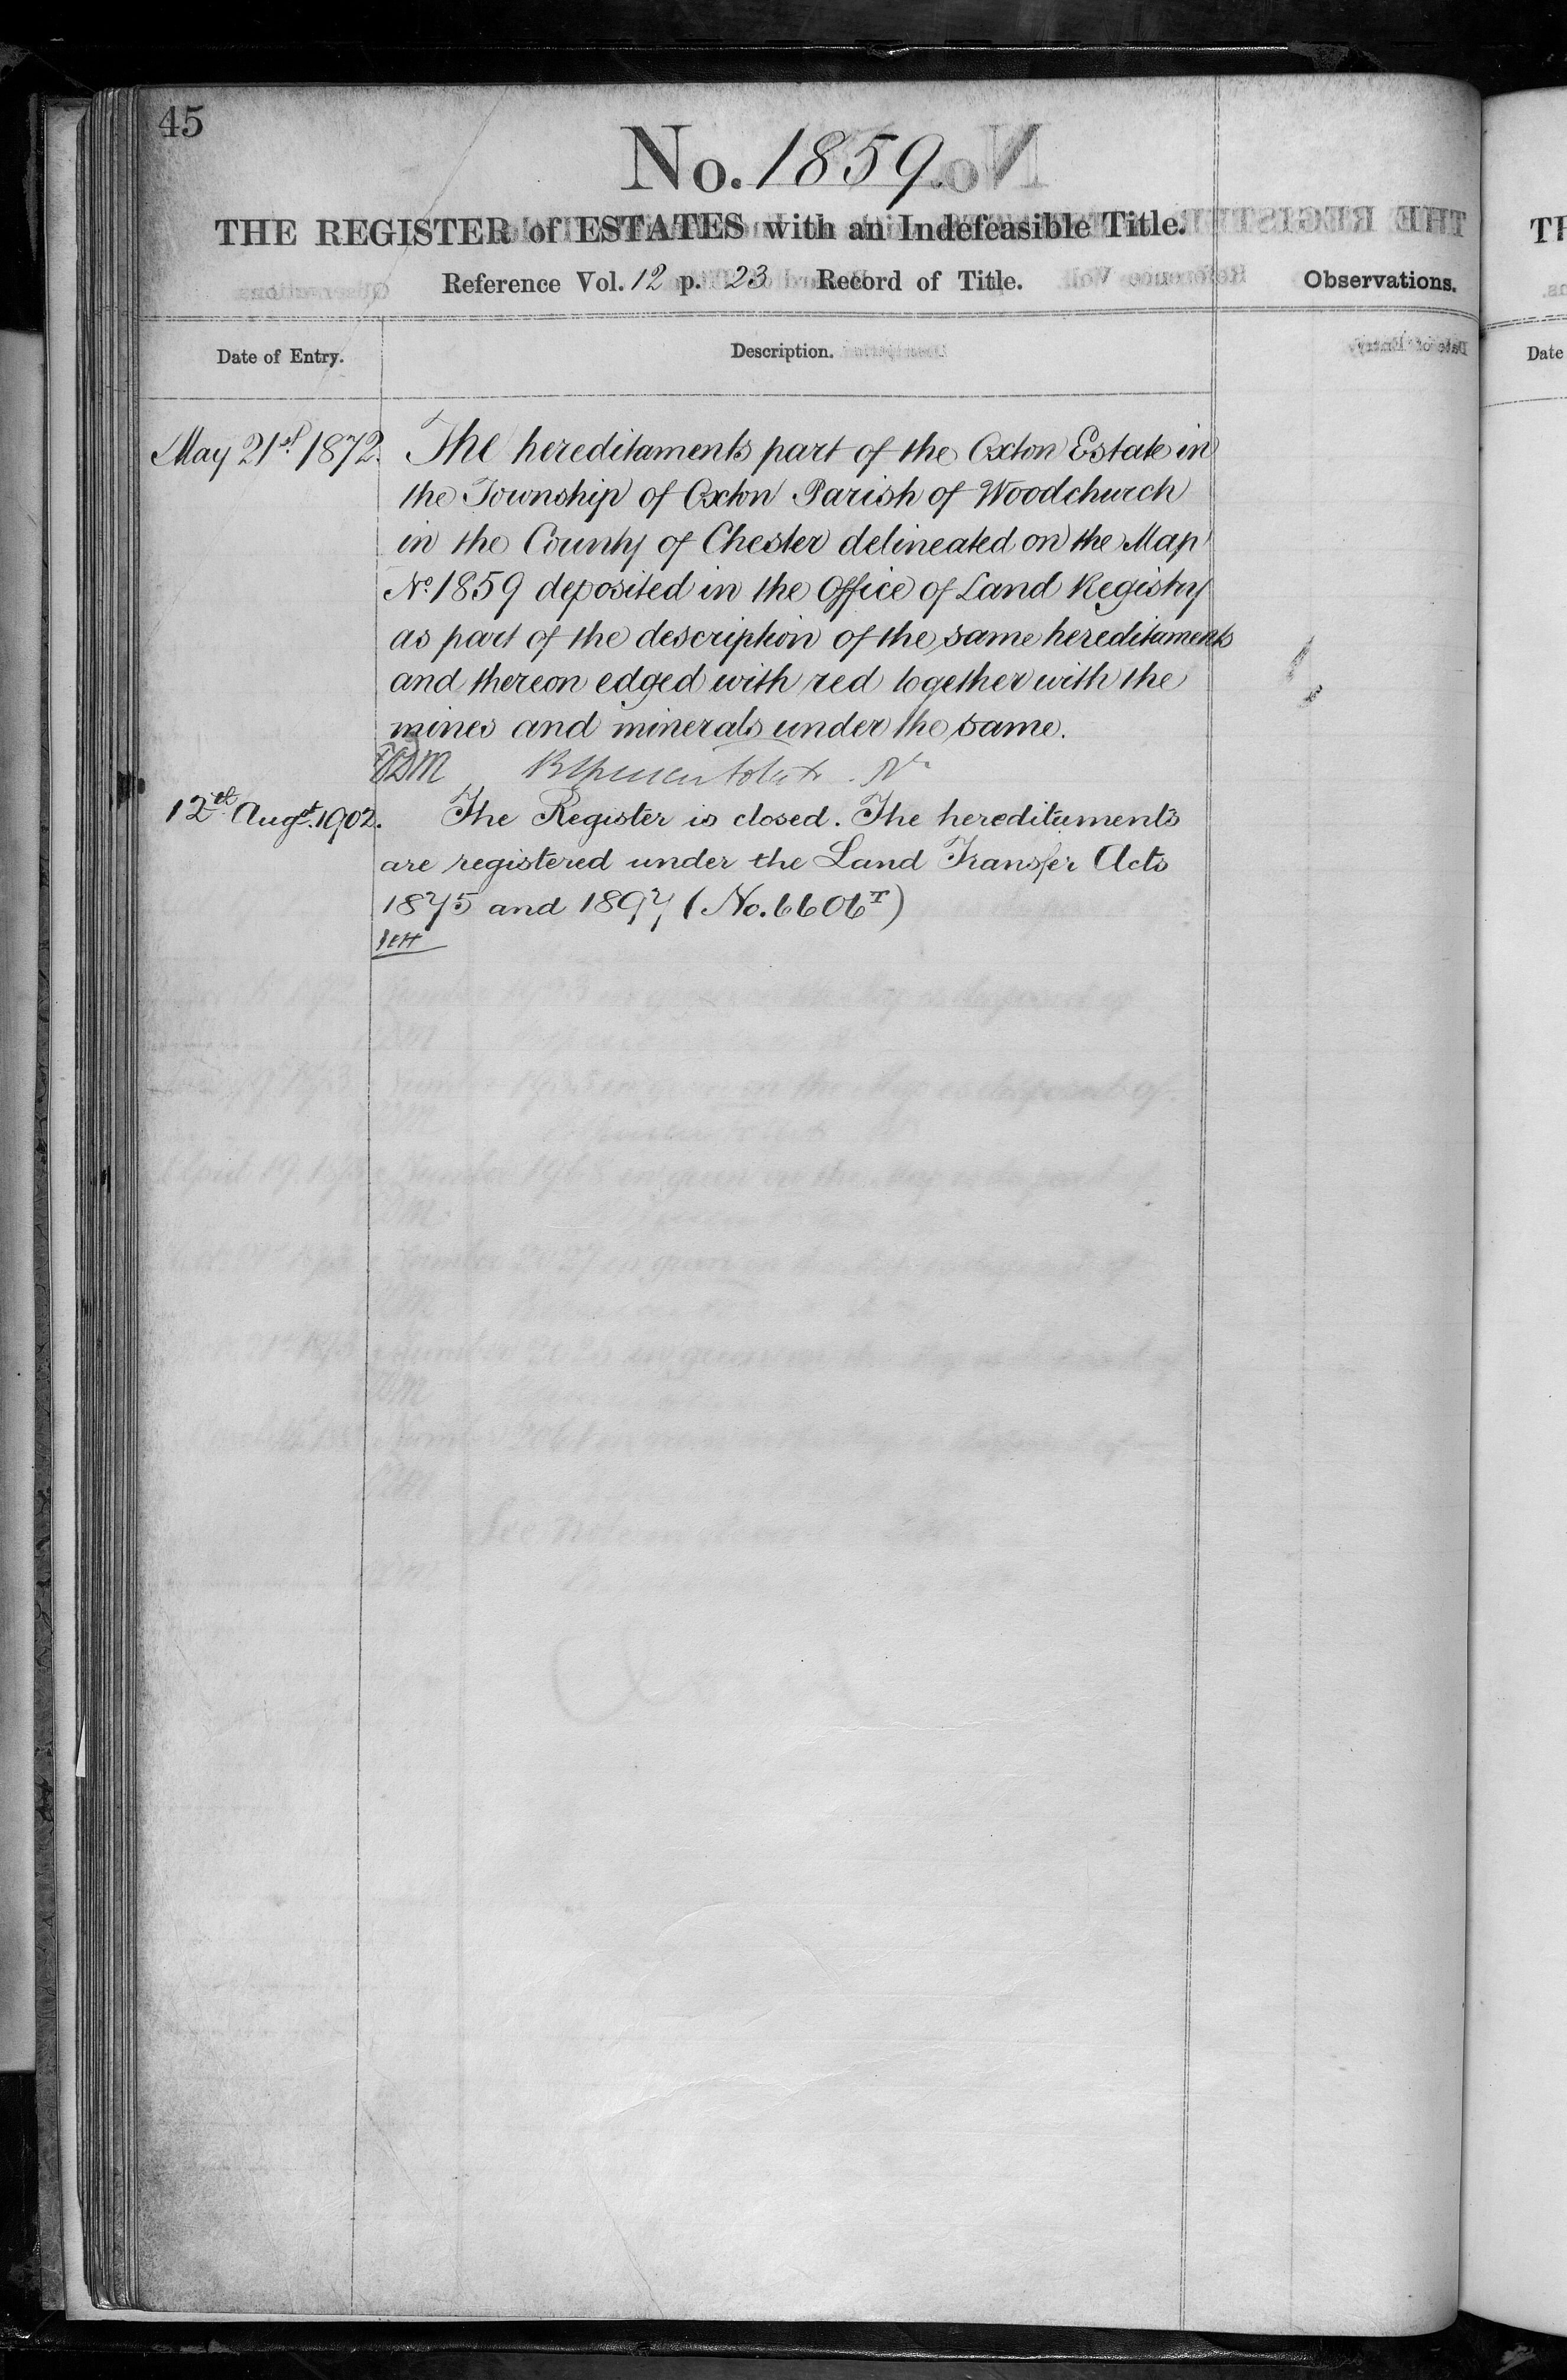 45
No. 1859.
THE REGISTER of ESTATES with an Indefeasible Title.
Reference Vol. 12 p. 23 Record of Title.
Observations.
Date of Entry.
Description.
May 21st 1872. The hereditaments part of the Oxton Estate in
the Township of Oxton Parish of Woodchurch
in the County of Chester delineated on the Map
No. 1859 deposited in the Office of Land Registry
as part of the description of the same hereditaments
and thereon edged with red together with the
mines and minerals under the same.
12th Augst. 1902. The Register is closed. The hereditaments
are registered under the Land Transfer Acts
1875 and 1897 (No. 6606
TH
Date